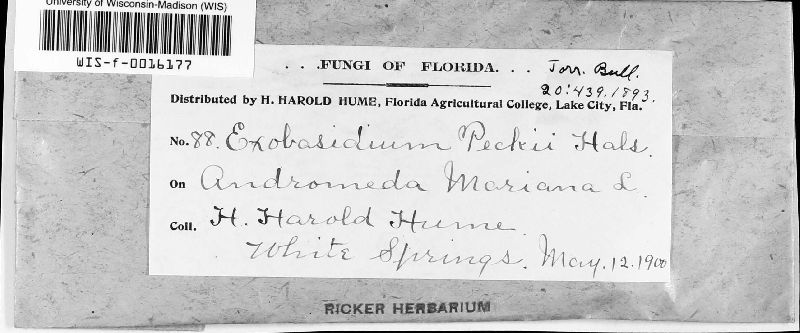 University of Wisconsin-Madison (WIS)
WIS-f-0016177
. . .FUNGI OF FLORIDA. . .
Torr. Bull.
20:439.1893.
Distributed by H. HAROLD HUME, Florida Agricultural College, Lake City, Fla.
No. 88. Exobasidium Peckii Hals.
On Andromeda Mariana L.
Coll. H. Harold Hume.
White Springs. May. 12. 1900
RICKER HERBARIUM